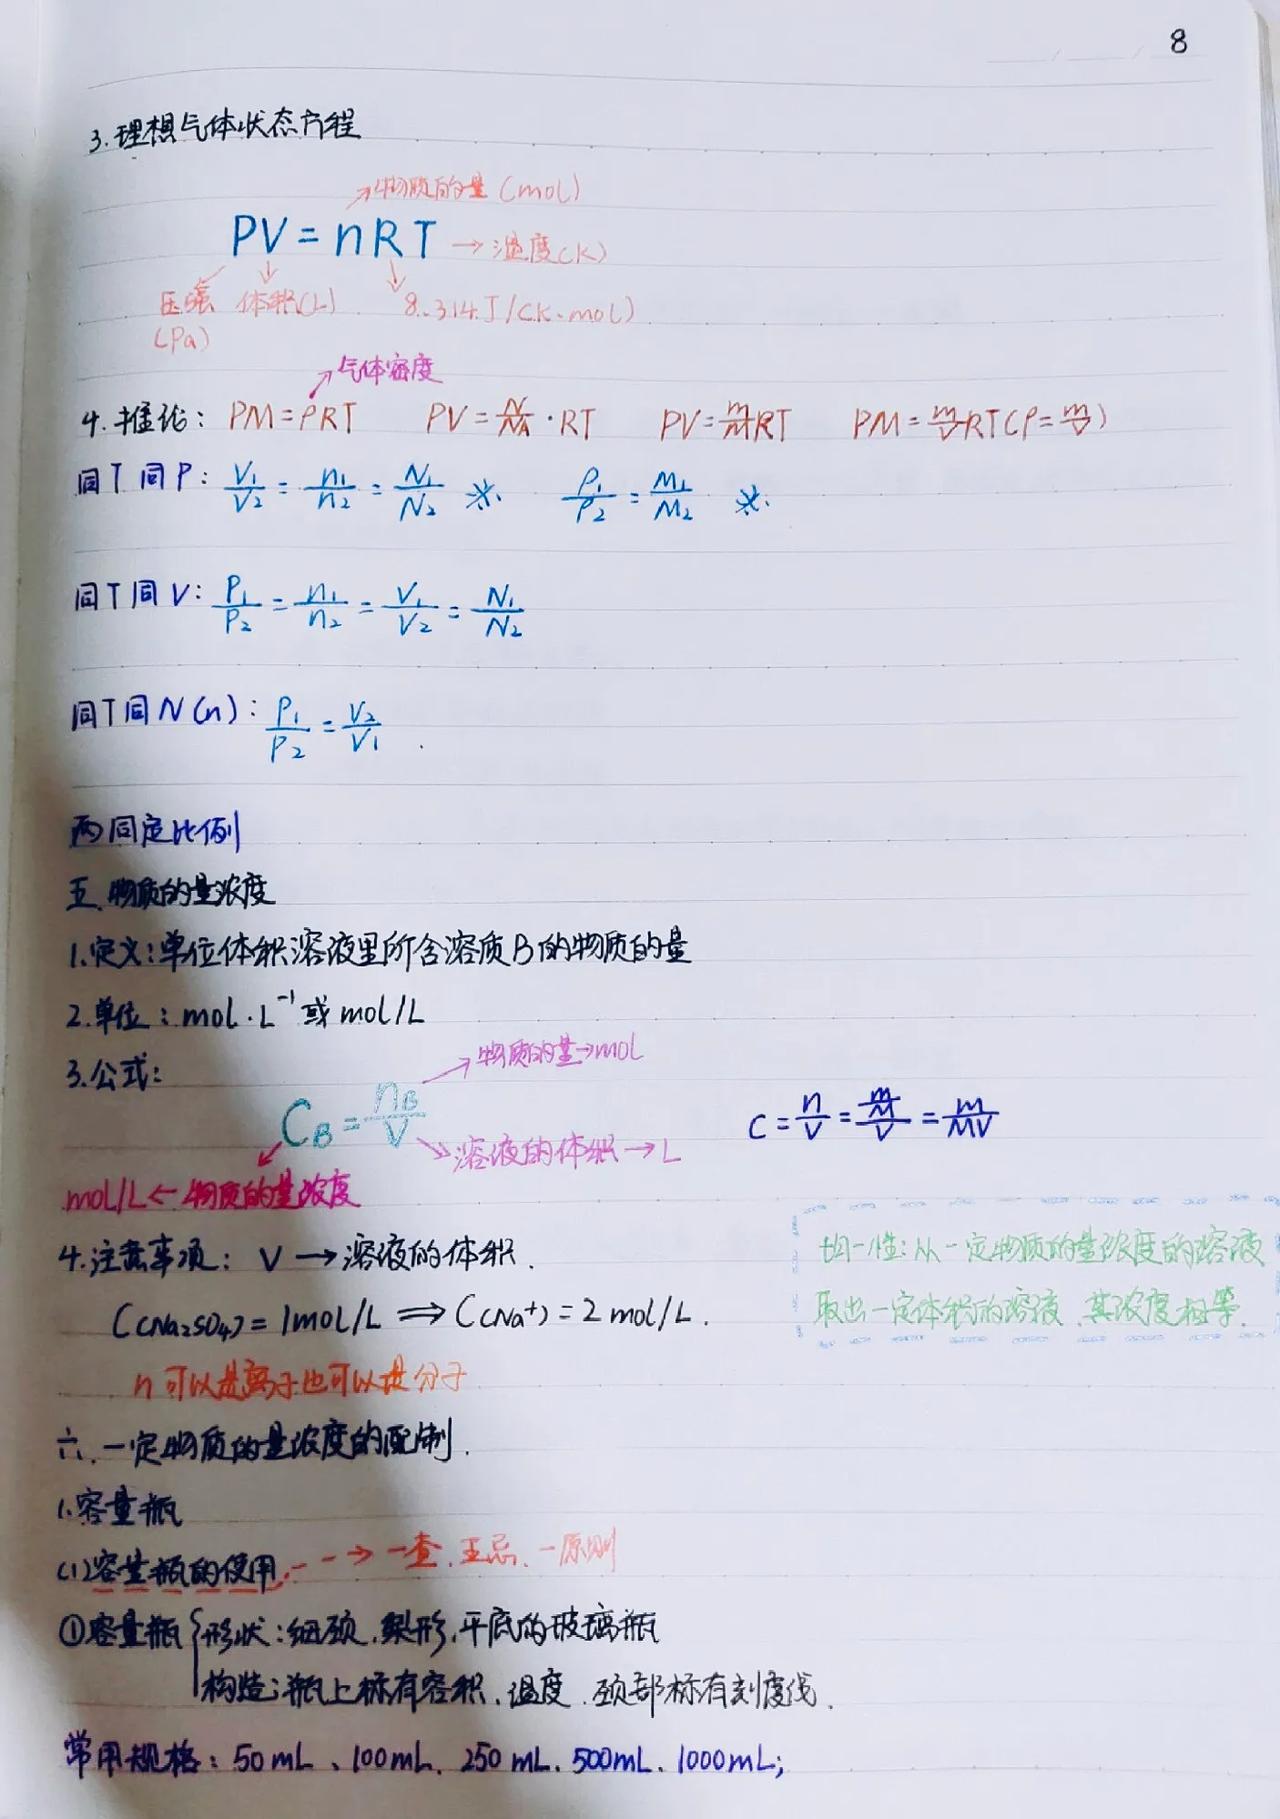 8
3.理想气体状态方程
物质的量(mol)
PV=nRT → 温度(K)
压强 体积(L) 8.314J/(K·mol)
(Pa)
气体密度
4.推论: PM=ρRT PV=N/NA·RT PV=m/M RT PM=m/V RT(ρ=m/V)
同T同P: V₁/V₂=n₁/n₂=N₁/N₂ ※. ρ₁/ρ₂=M₁/M₂ ※.
同T同V: P₁/P₂=n₁/n₂=V₁/V₂=N₁/N₂
同T同N(n): P₁/P₂=V₂/V₁
两同定比例
五.物质的量浓度
1.定义:单位体积溶液里所含溶质B的物质的量
2.单位: mol·L⁻¹或mol/L
3.公式:
物质的量→mol
C_B=n_B/V C=n/V=(m/M)/V=m/MV
溶液的体积→L
mol/L←物质的量浓度
4.注意事项: V→溶液的体积.
均一性:从一定物质的量浓度的溶液
取出一定体积的溶液.其浓度相等.
C(Na₂SO₄)=1mol/L⇒C(Na⁺)=2mol/L.
n可以是离子也可以是分子
六.一定物质的量浓度的配制.
1.容量瓶
(1)容量瓶的使用--→一查.五忌.一原则
①容量瓶{形状:细颈.梨形.平底的玻璃瓶
构造:瓶上标有容积.温度.颈部标有刻度线.
常用规格: 50mL、100mL.250mL.500mL.1000mL;